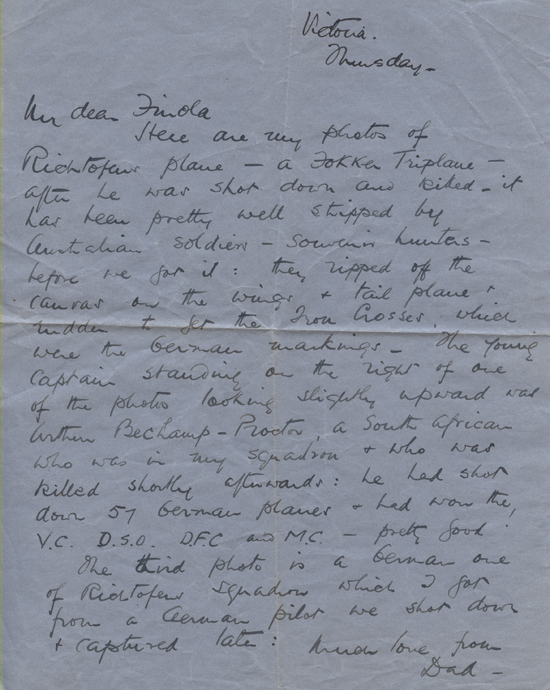 Victoria.
Thursday -
My dear Finola
Here are my photos of
Richtofens plane - a Fokker Triplane -
after he was shot down and killed - it
has been pretty well stripped by
Australian soldiers - souvenir hunters -
before we got it: they ripped off the
canvas on the wings & tail plane &
rudder to get the Iron Crosses, which
were the German markings - The young
Captain standing on the right of one
of the photos looking slightly upward was
Arthur Bechamp-Proctor, a South African
who was in my squadron & who was
killed shortly afterwards: he had shot
down 57 German planes & had won the,
V.C. D.S.O. D.F.C and M.C. - pretty good
The third photo is a German one
of Richtofens Squadron which I got
from a German pilot we shot down
& captured later: Much love from
Dad -